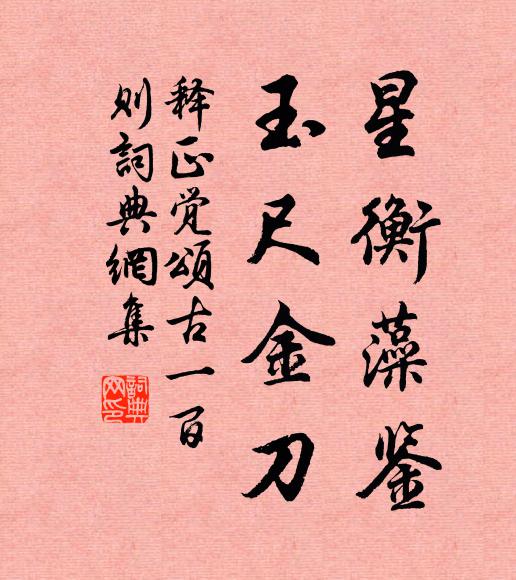 星衡藻鉴
玉尺金刀
释正觉颂古一百
则詞典網集
詞典
网印